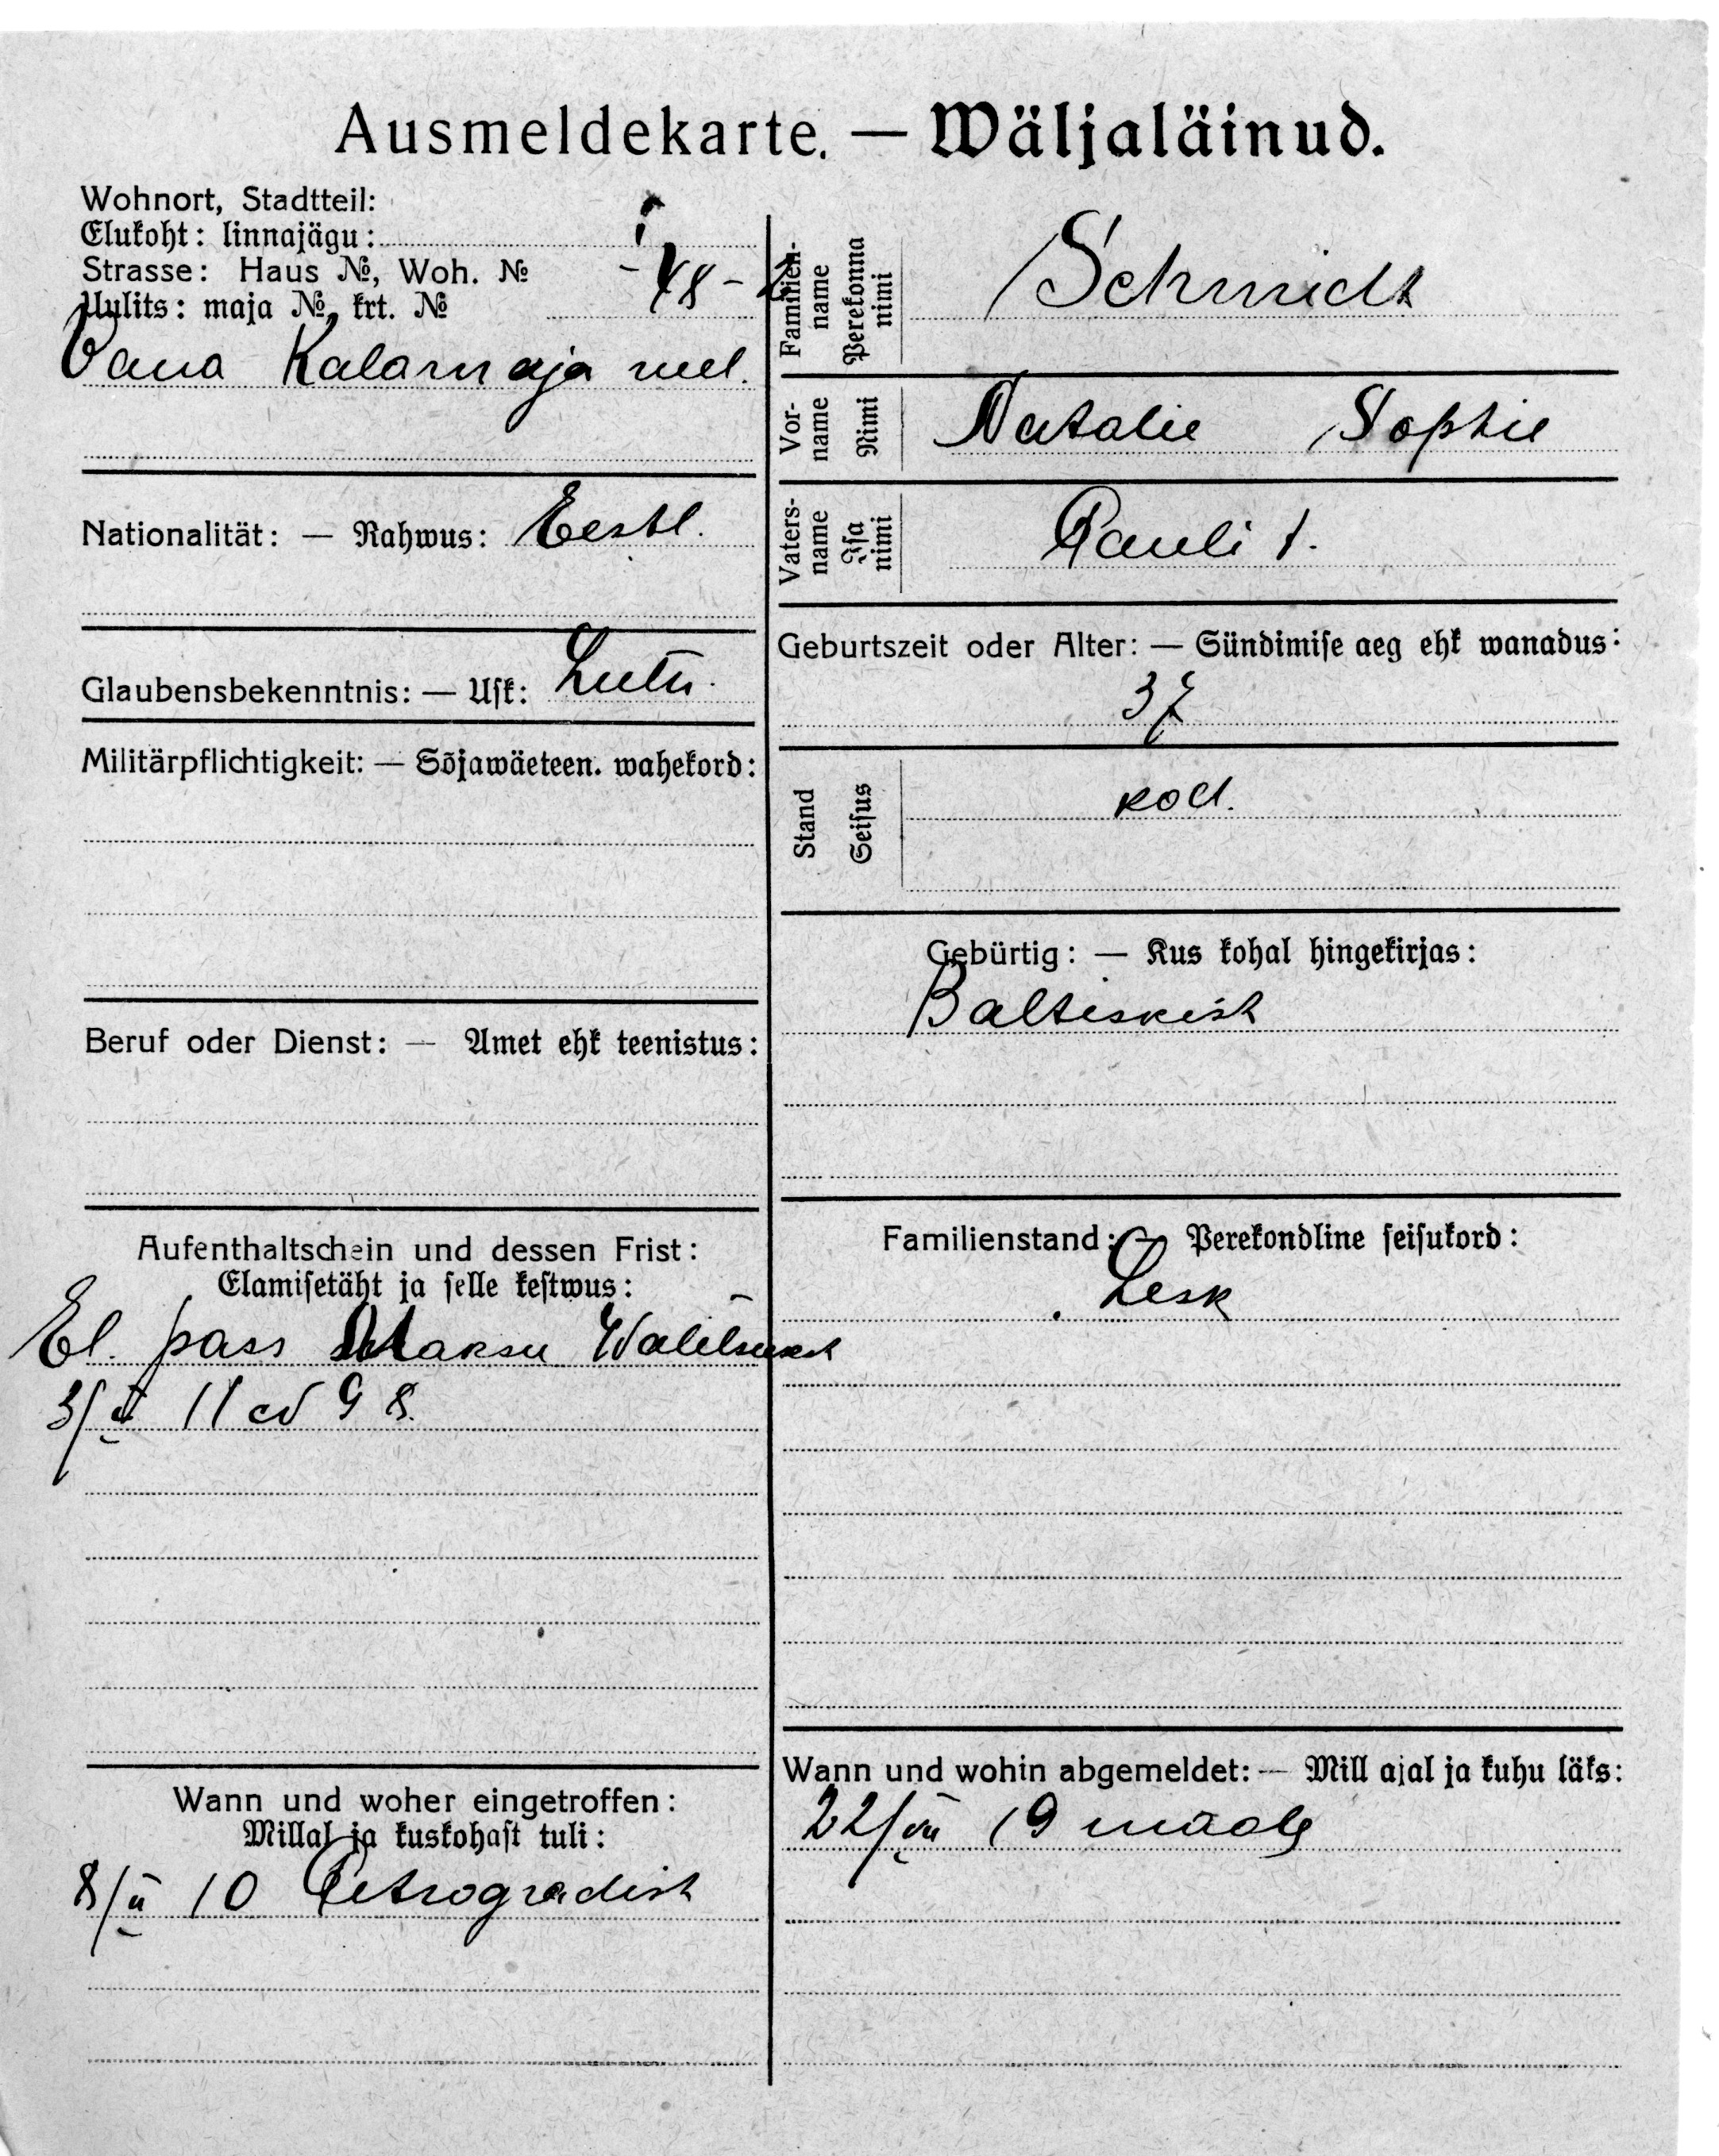 Ausmeldekarte. — Wäljaläinud.
Wohnort, Stadtteil:
Elukoht: linnajägu:
Strasse: Haus №, Woh. №
Uulits: maja №, krt. № -48-2
Vana Kalamaja uul.
Nationalität: — Rahwus: Eestl.
Glaubensbekenntnis: — Usk: Lutu.
Militärpflichtigkeit: — Sõjawäeteen. wahekord:
Beruf oder Dienst: — Amet ehk teenistus:
Aufenthaltschein und dessen Frist:
Elamisetäht ja selle kestwus:
El. pass Maksu Walitsusest
3/II 11 ad 98.
Wann und woher eingetroffen:
Millal ja kuskohast tuli:
8/II 10 Petrogradist
Familien-name Perekonna nimi Schmidt
Vor-name Nimi Natalie Sophie
Vaters-name Isa nimi Pauli t.
Geburtszeit oder Alter: — Sündimise aeg ehk wanadus:
37
Stand Seisus kod.
Gebürtig: — Kus kohal hingekirjas:
Baltiskist
Familienstand: — Perekondline seisukord:
Lesk
Wann und wohin abgemeldet: — Mill ajal ja kuhu läks:
22/VII 19 maale